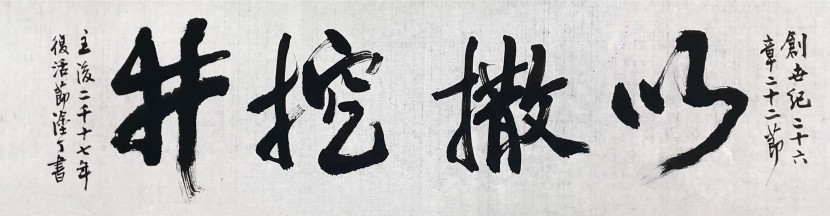 創世紀二十六
章二十二節
以撒挖井
主後二千十七年
復活節塗丁書